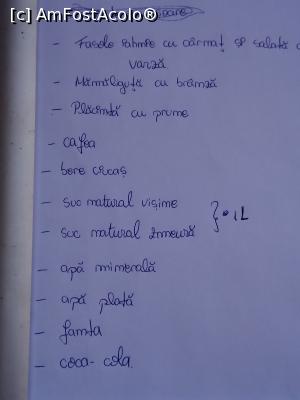 [c] AmFostAcolo®
- Fasole iahnie cu cârnaț și salată d
varză
- Mămăliguță cu brânză
- Plăcintă cu prune
- cafea
- bere ciucaș
- suc natural vișine
- suc natural zmeură } 1L
- apă minerală
- apă plată
- fanta
- coca-cola.